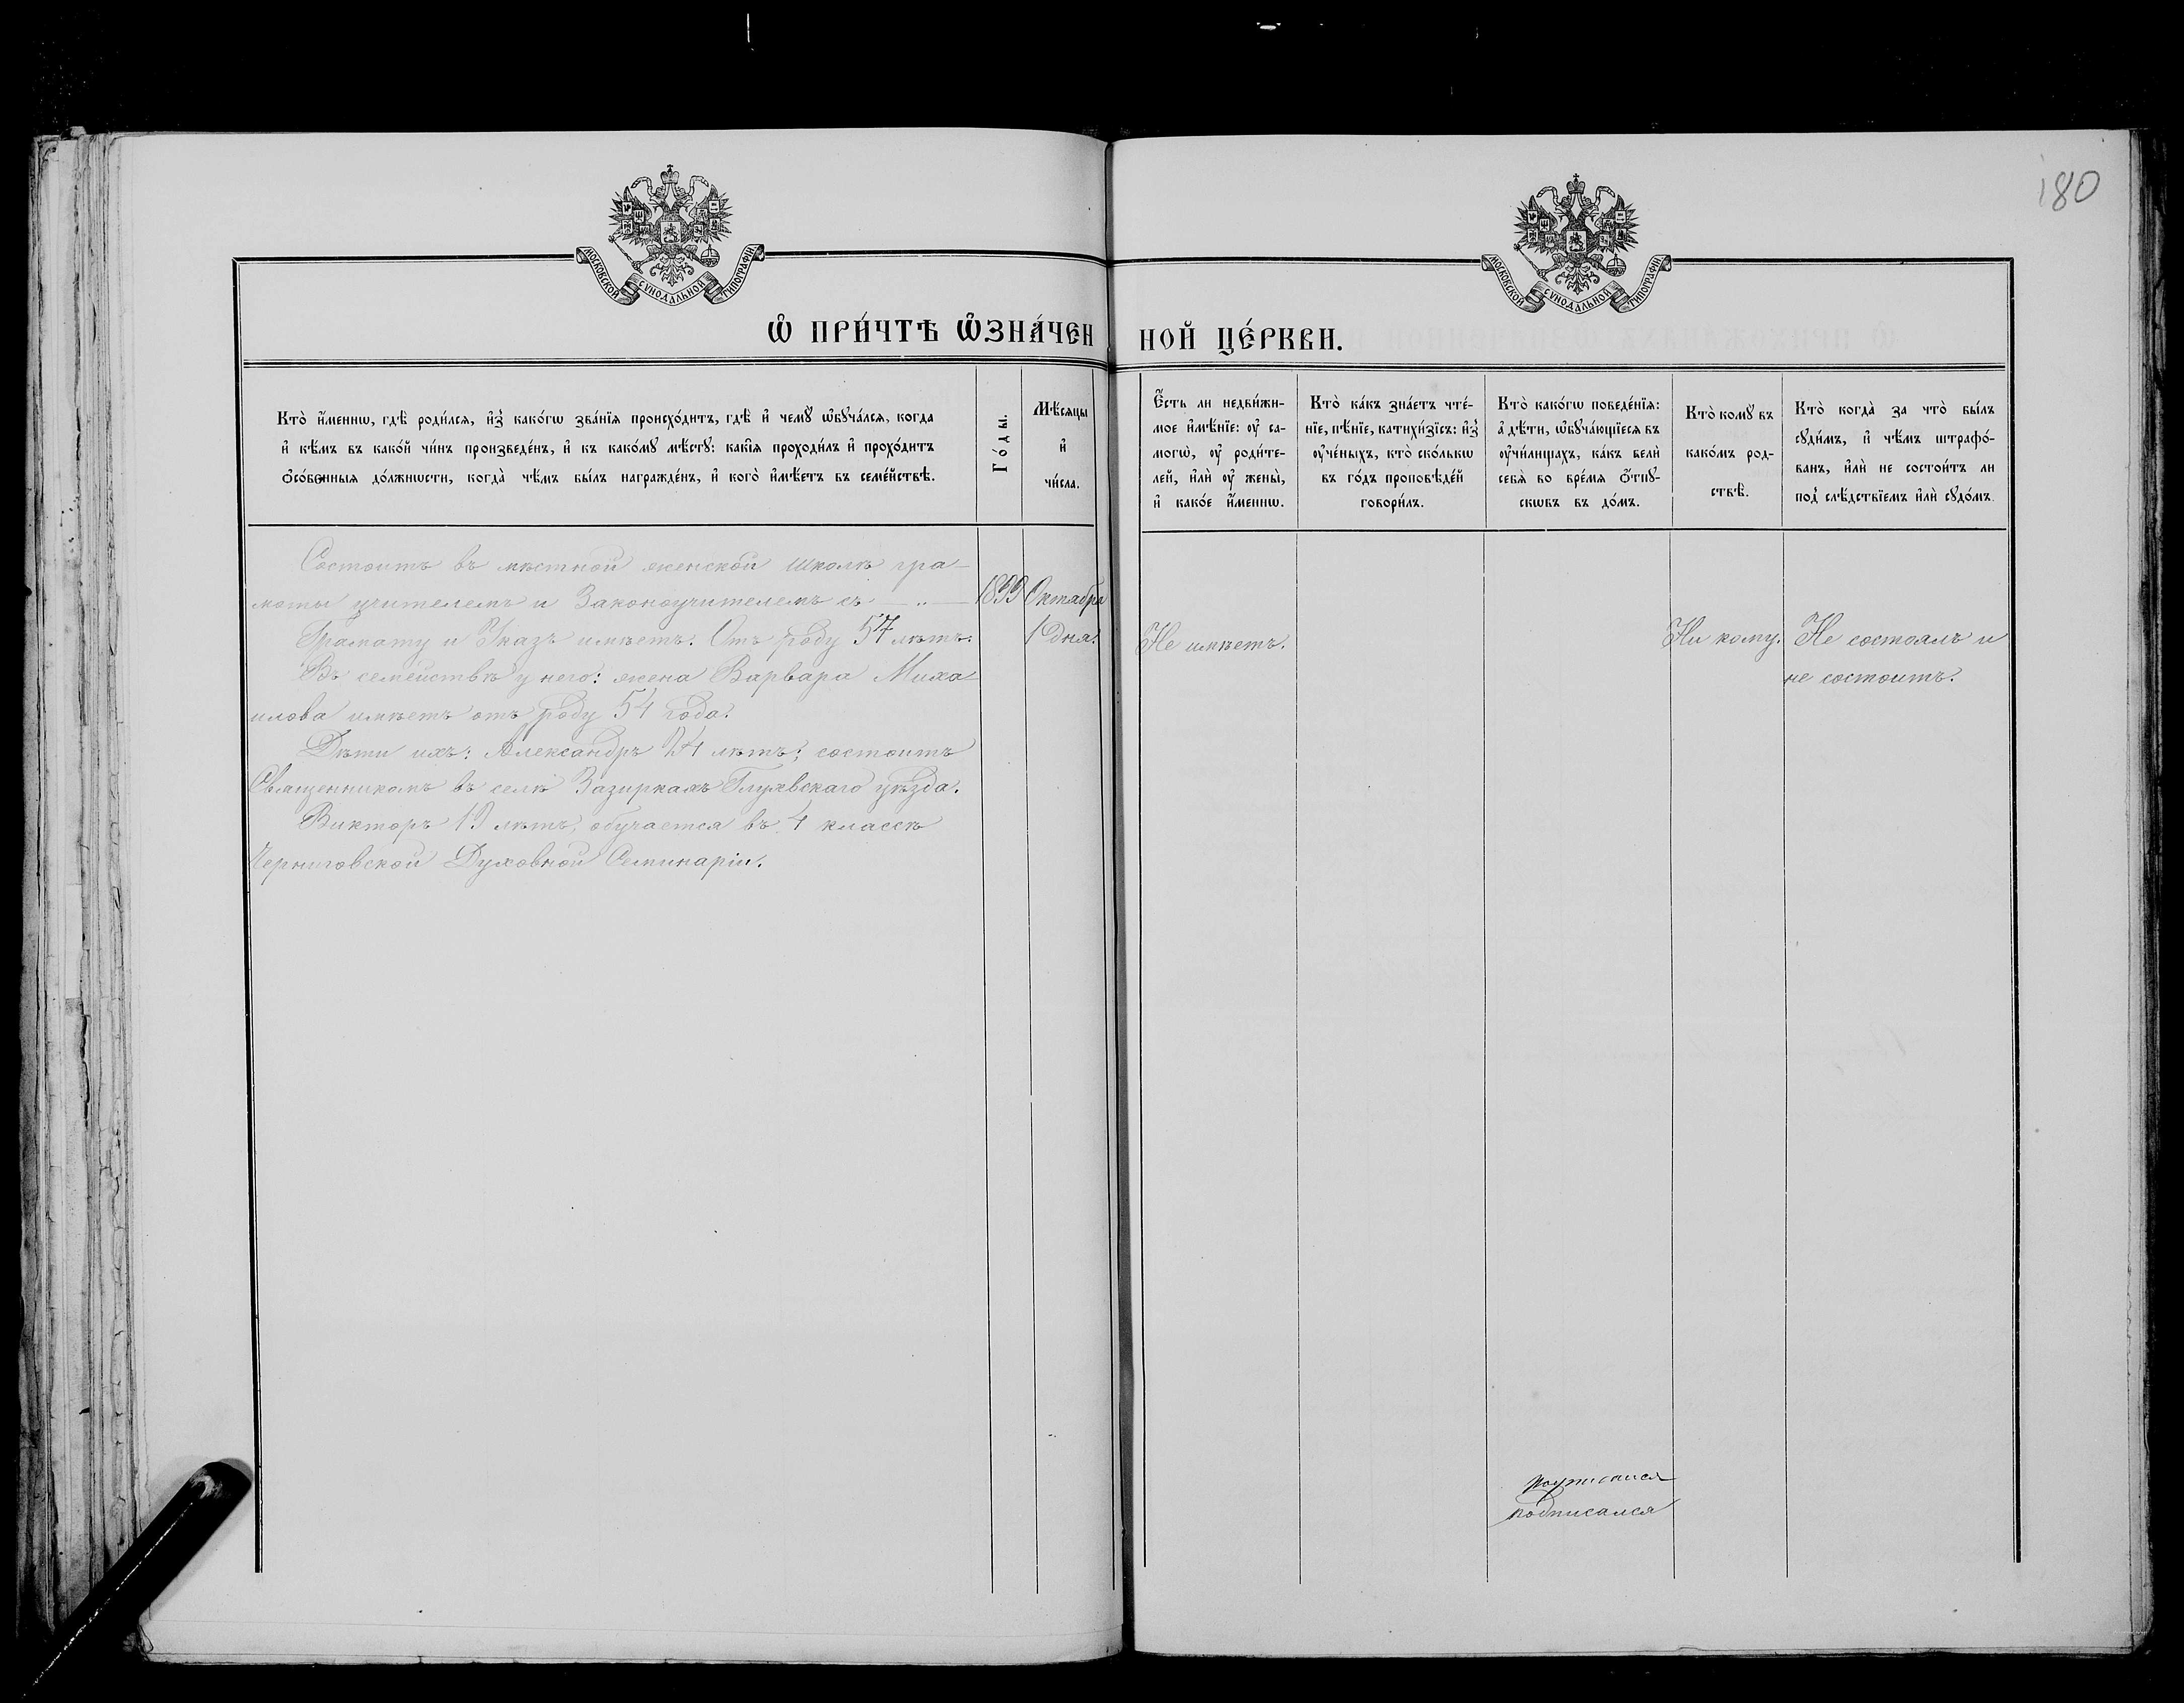 180
МОСКОВСКОЙ СѴНОДАЛЬНОЙ ТИПОГРАФІИ
МОСКОВСКОЙ СѴНОДАЛЬНОЙ ТИПОГРАФІИ
Ѽ ПРИ́ЧТѢ Ѽ҆ЗНА́ЧЕН НОЙ ЦЕ́РКВИ.
Кто̀ и҆́меннѡ, гдѣ̀ роди́лсѧ, и҆з̾ како́гѡ зва́нїѧ происхо́дитъ, гдѣ̀ и҆ чемꙋ̀ ѡ҆бꙋча́лсѧ, когда
и҆ кѣ́мъ въ како́й чи́нъ произведе́нъ, и҆ къ како́мꙋ мѣ́стꙋ: какі̑ѧ проходи́лъ и҆ прохо́дитъ
ѻ҆со́бенныѧ до́лжнѡсти, когда̀ чѣ́мъ бы́лъ награжде́нъ, и҆ кого̀ и҆мѣ́етъ въ семе́йствѣ.
Го́ды.
Мѣ́сѧцы
и҆
чи́сла.
Е҆́сть ли недви́жи-
мое и҆мѣ́нїе: ᲂу҆ са-
могѡ̀, ᲂу҆ роди́те-
лей, и҆лѝ ᲂу҆ жены̀,
и҆ како́е и҆́меннѡ.
Кто̀ ка́къ зна́етъ чте́-
нїе, пѣ́нїе, катихи́зїсъ: и҆з̾
ᲂу҆че́ныхъ, кто̀ ско́лькѡ
въ го́дъ проповѣде́й
говори́лъ.
Кто̀ како́гѡ поведе́нїѧ:
а҆ дѣ́ти, ѡ҆бꙋча́ющїесѧ въ
ᲂу҆чи́лищахъ, ка́къ велѝ
себѧ̀ во вре́мѧ ѻ҆́тпꙋ-
скѡвъ въ до́мъ.
Кто̀ комꙋ̀ въ
како́мъ род-
ствѣ̀.
Кто̀ когда̀ за что̀ бы́лъ
сꙋди́мъ, и҆ чѣ́мъ штрафо́-
ванъ, и҆лѝ не состои́тъ ли
под̾ слѣ́дствїемъ и҆лѝ сꙋдо́мъ.
Состоитъ въ мѣстной женской школѣ гра-
моты учителемъ и Законоучителемъ съ — „ — 1899 Октября
Грамату и Указъ имѣетъ. Отъ роду 57 лѣтъ. 1 дня. Не имѣетъ. Ни кому. Не состоялъ и
Въ семействѣ у него: жена Варвара Миха- не состоитъ.
илова имѣетъ отъ роду 54 года.
Дѣти ихъ: Александръ 24 лѣтъ; состоитъ
Священникомъ въ селѣ Зазиркахъ Глуховскаго уѣзда.
Викторъ 19 лѣтъ, обучается въ 4 классѣ
Черниговской Духовной Семинаріи.
подписался